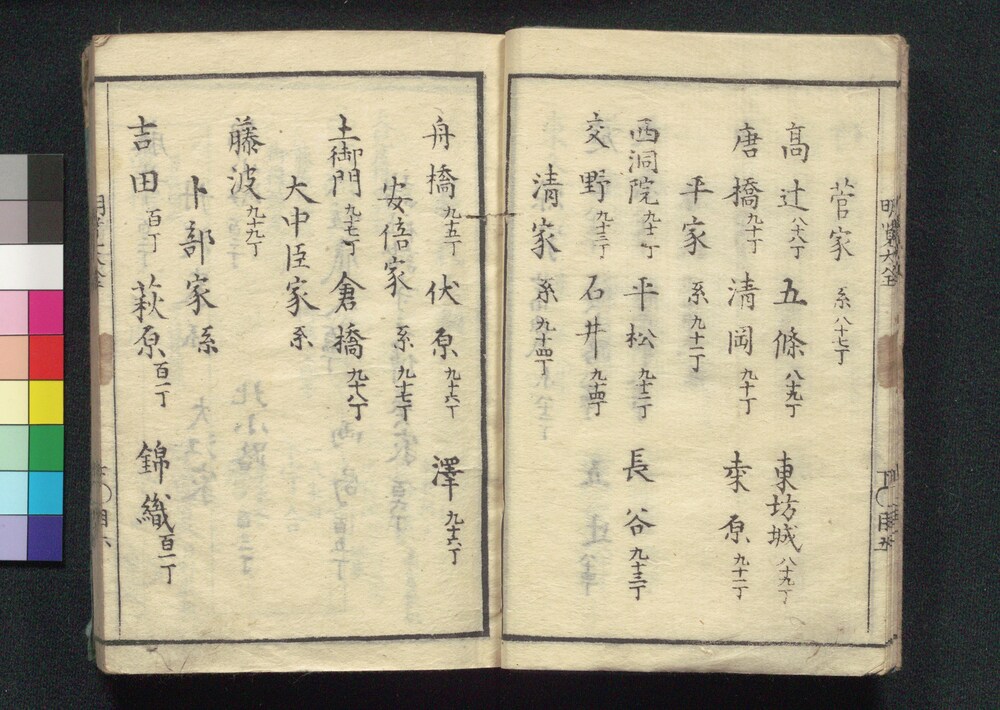 菅家 系 八十七丁
高辻 八十八丁 五條 八十九丁 東坊城 八十九丁
唐橋 九十丁 清岡 九十丁 桒原 九十一丁
平家 系 九十一丁
西洞院 九十一丁 平松 九十二丁 長谷 九十三丁
交野 九十三丁 石井 九十四丁
清家 系 九十四丁
舟橋 九十五丁 伏原 九十六丁 澤 九十六丁
安倍家 系 九十七丁
土御門 九十七丁 倉橋 九十八丁
大中臣家 系
藤波 九十九丁
卜部家 系
吉田 百丁 萩原 百一丁 錦織 百一丁